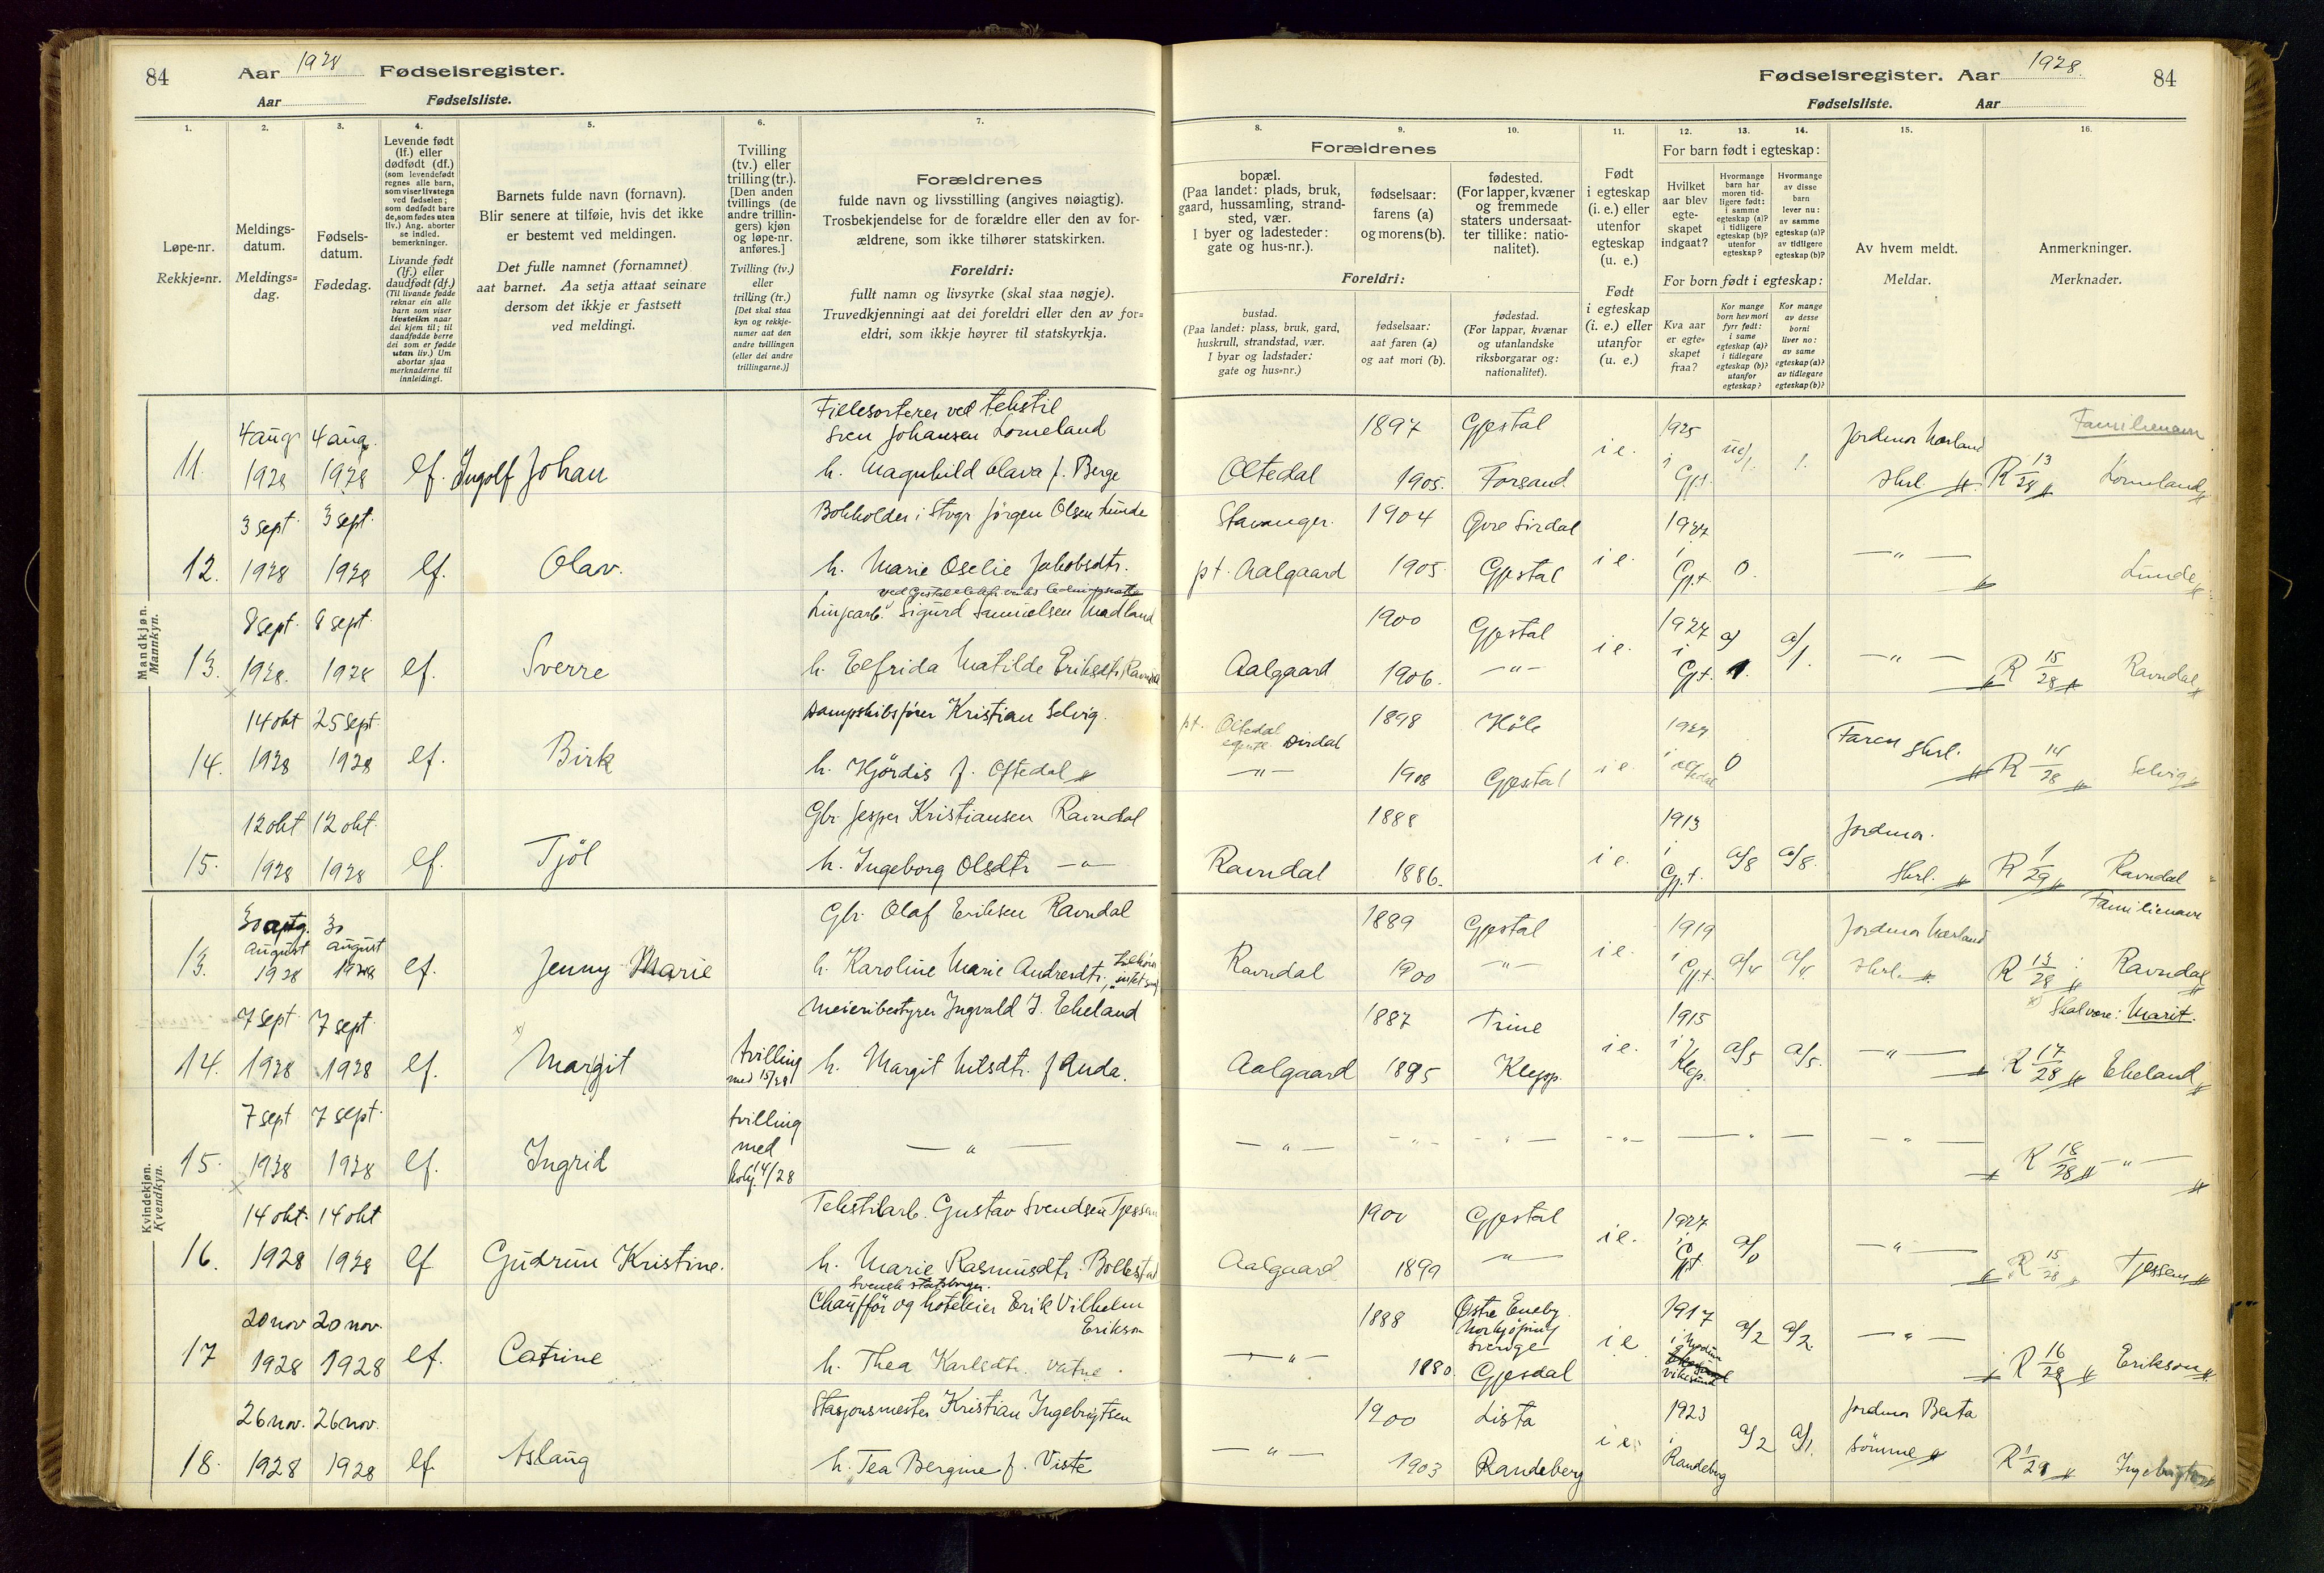 84
Aar 1928 Fødselsregister.
Aar Fødselsliste.
Fødselsregister. Aar 1928.
84
Fødselsliste. Aar
1.
Løpe-nr.
Rekkje=nr.
2.
Meldings-
datum.
Meldings=
dag.
3.
Fødsels-
datum.
Fødedag.
4.
Levende født
(lf.) eller
dødfødt (df.)
(som levendefødt
regnes alle barn,
som viser livstegn
ved fødselen;
som dødfødt bare
de, som fødes uten
liv.) Ang. aborter
se indled.
bemerkninger.
Livande født
(lf.) eller
daudfødt (df.)
(Til livande fødde
reknar ein alle
barn som viser
livsteikn naar
dei kjem til; til
daudfødde berre
dei som er fødde
utan liv.) Um
abortar sjaa
merknaderne til
innleidingi.
5.
Barnets fulde navn (fornavn).
Blir senere at tilføie, hvis det ikke
er bestemt ved meldingen.
Det fulle namnet (fornamnet)
aat barnet. Aa setja attaat seinare
dersom det ikkje er fastsett
ved meldingi.
6.
Tvilling
(tv.) eller
trilling (tr.).
[Den anden
tvillings (de
andre trillin-
gers) kjøn
og løpe-nr.
anføres.]
Tvilling (tv.)
eller
trilling (tr.)
[Det skal staa
kyn og rekkje-
numer aat den
andre tvillingen
(eller dei andre
trillingarne.)]
7.
Forældrenes
fulde navn og livsstilling (angives nøiagtig).
Trosbekjendelse for de forældre eller den av for-
ældrene, som ikke tilhører statskirken.
Foreldri:
fullt namn og livsyrke (skal staa nøgje).
Truvedkjenningi aat dei foreldri eller den av for=
eldri, som ikkje høyrer til statskyrkja.
Forældrenes
8.
bopæl.
(Paa landet: plads, bruk,
gaard, hussamling, strand-
sted, vær.
I byer og ladesteder:
gate og hus-nr.).
9.
fødselsaar:
farens (a)
og morens (b).
10.
fødested.
(For lapper, kvæner
og fremmede
staters undersaat-
ter tillike: natio-
nalitet).
Foreldri:
bustad.
(Paa landet: plass, bruk, gard,
huskrull, strandstad, vær.
I byar og ladstader:
gate og hus=nr.)
fødselsaar:
aat faren (a)
og aat mori (b).
fødestad.
(For lappar, kvænar
og utanlandske
riksborgarar og:
nationalitet).
11.
Født
i egteskap
(i. e.) eller
utenfor
egteskap
(u. e.)
Født
i egteskap
(i. e.) eller
utanfor
(u. e.)
12. 13. 14.
For barn født i egteskap:
Hvilket
aar blev
egte-
skapet
indgaat?
Hvormange
barn har
moren tid-
ligere født:
i samme
egteskap (a)?
i tidligere
egteskap (b)?
utenfor
egteskap?
Hvormange
av disse
barn
lever nu:
av samme
egteskap (a)?
av tidligere
egteskap (b)?
For born født i egteskap:
Kva aar
er egte=
skapet
fraa?
Kor mange
born hev mori
fyrr født:
i same
egteskap (a)?
i tidlegare
egteskap (b)?
utanfor
egteskap?
Kor mange
av desse
borni
liver no:
av same
egteskap (a)?
av tidlegare
egteskap (b)?
15.
Av hvem meldt.
Meldar.
16.
Anmerkninger.
Merknader.
Mandkjøn.
Mannkyn.
11. 4 aug 1928 4 aug. 1928 lf. Ingolf Johan
Fillesorterer ved tekstil
Sven Johansen Lomeland
h. Magnhild Olava f. Berge
Oltedal 1897 1905. Gjestal Forsand. i e. 1925 i Gj.t. 1.
Jordmor Norland Skrl. R 13/28 Familienavn Lomeland
12. 3 sept 1928 3 sept. 1928 lf. Olav.
Bokholder i Stvgr Jørgen Olsen Lunde
h. Marie Oselie Jakobsdtr.
Stavanger. pt. Aalgaard 1904 1905. Øvre Sirdal Gjestal i e. 1927 i Gj.t. 0. — " — Lunde
13. 8 sept. 1928. 8 sept. 1928 lf. Sverre
Linjearb. Sigurd Samuelsen Madland
h. Elfrida Matilde Eriksdtr Ravndal
Aalgaard 1900 1906. Gjestal — " — i e. 1927 i Gj.t. a/1. a/1. — " — R 15/28 Ravndal
14. 14 okt 1928 25 sept 1928 lf. Birk
Dampskibsfører Kristian Selvig.
h. Hjördis f. Oftedal
pt. Oltedal egentl Dirdal — " — 1898 1908 Høle Gjestal i e. 1927 i Oltedal 0
Faren Skrl. R 14/28 Selvig
15. 12 okt 1928 12 okt. 1928 lf. Tjöl
Gbr. Jesper Kristiansen Ravndal
h. Ingeborg Olsdtr — " —
Ravndal 1888 1886. i e. 1913 i Gj.t. a/8 a/8.
Jordmor. Skrl. R 1/29 Ravndal
Kvindekjøn.
Kvendkyn.
13. 30 august 1928 30 august 1928 lf. Jenny Marie
Gbr. Olaf Eriksen Ravndal
h. Karoline Marie Andresdtr.
Ravndal 1889 1900 Gjestal — " — i e. 1919 i Gj.t. a/4 a/4.
Jordmor Norland Skrl. R 13/28 Familienavn Ravndal
14. 7 sept. 1928 7 sept. 1928 lf. Margit tvilling med 15/28
Meieribestyrer Ingvald J. Eheland
h. Margit Nilsdtr. f Anda.
Aalgaard 1887 1895 Time Klepp. i e. 1915 i Klep. a/5 a/5. — " — R 17/28 Skal være: Marit. Eheland
15. 7 sept 1928 7 sept. 1928 lf. Ingrid tvilling med 14/28
— " —
— " — — " — — " — — " — R 18/28 — " —
16. 14 okt. 1928 14 okt 1928 lf Gudrun Kristine.
Tekstilarb. Gustav Svendsen Tjessem
h. Marie Rasmusdtr. Bollestad
Aalgaard 1900 1899 Gjestal — " — i e. 1927 i Gjt a/0 — " — R 15/28 Tjessem
17 20 nov 1928 20 nov. 1928 lf. Catrine
Svensk statsborger.
Chauffør og hoteleier Erik Vilhelm
Erikson
h. Thea Karlsdtr. Vatne.
— " — 1888 1880. Østre Eneby Norkjøping Sverige Gjesdal i e 1917 a/2 a/2. — " — R 16/28 Erikson
18. 26 nov. 1928 26 nov. 1928 lf Aslaug
Stasjonsmester Kristian Ingebrigtsen
h. Tea Bergine f. Viste
— " — 1900 1903 Lista Randeberg i e. 1923 i Randeberg a/2 a/1.
Jordmor Berta Sømme R 1/29 Ingebrigtsen